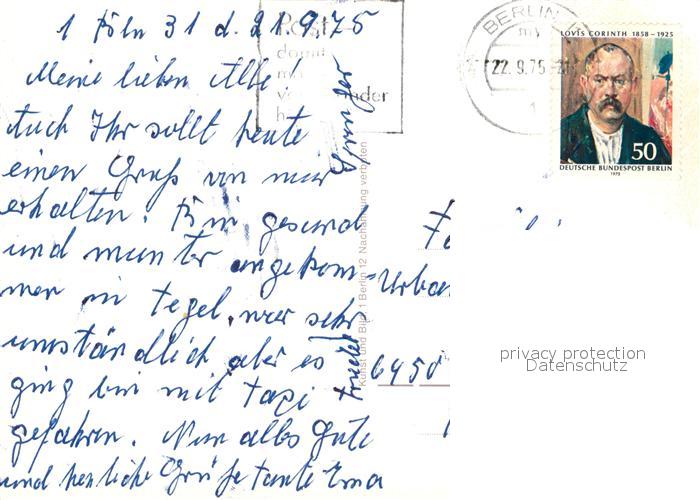 1 Köln 31 d. 21.9.75
Meine lieben Alle!
Auch Ihr sollt heute
einen Gruß von mir
erhalten. Bin gesund
und munter angekom-
men in Tegel, war sehr
umständlich aber es
ging bin mit Taxi
gefahren. Nun alles Gute
und herzliche Grüße Tante Erna
Post
damit
der
Kunst und Bild 1 Berlin 12 Nachahmung verboten
BERLIN
22.9.75-21
1
LOVIS CORINTH 1858–1925
50
DEUTSCHE BUNDESPOST BERLIN
1975
Urba
6450
privacy protection
Datenschutz